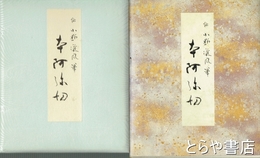 伝小野道風筆
本阿弥切
伝小野道風筆
本阿弥切
とらや書店